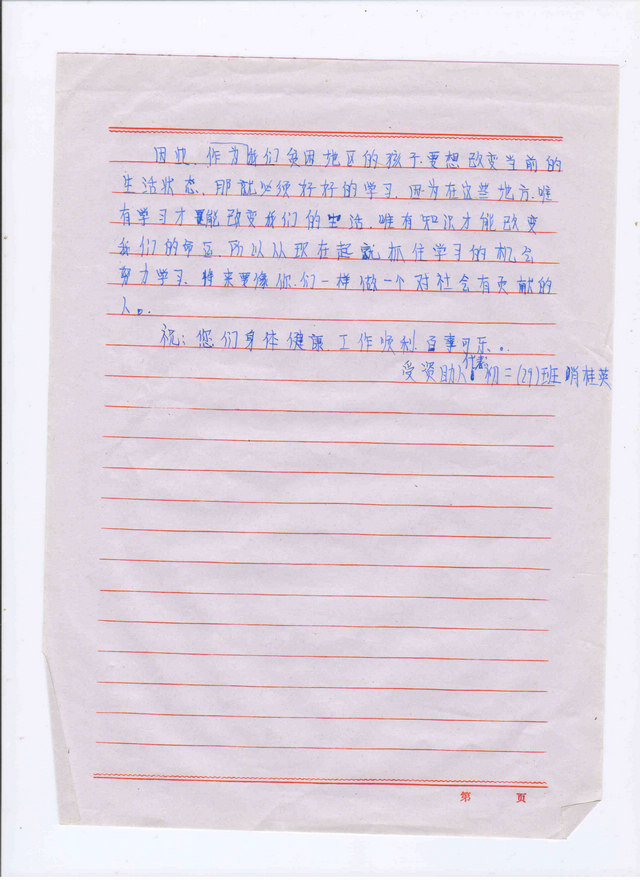 因此, 作为我们贫困地区的孩子.要想改变当前的
生活状态, 那就必须好好的学习. 因为在这些地方.唯
有学习才能改变我们的生活. 唯有知识才能改变
我们的命运, 所以从现在起就抓住学习的机会
努力学习. 将来要像你们一样做一个对社会有贡献的
人。.
祝: 您们身体健康 工作顺利 百事可乐。.
受资助人代表: 初二(29)班 肖桂英
第 页